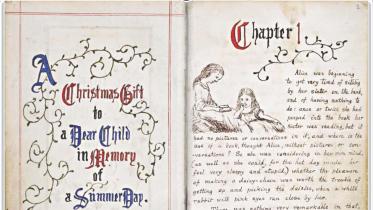 A
Christmas Gift
to
a Dear Child
in Memory
of
a Summer Day.
Chapter 1
Alice was beginning
to get very tired of sitting
by her sister on the bank,
and of having nothing to
do: once or twice she had
peeped into the book her
sister was reading, but it
had no pictures or conversations in it, and where is the
use of a book, thought Alice, without pictures or con-
versations? So she was considering in her own mind,
(as well as she could, for the hot day made her
feel very sleepy and stupid,) whether the pleasure
of making a daisy-chain was worth the trouble of
getting up and picking the daisies, when a white
rabbit with pink eyes ran close by her.